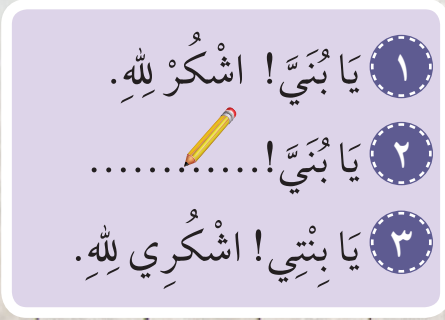 ١ يَا بُنَيَّ! اشْكُرْ لِلهِ.
٢ يَا بُنَيَّ!............
٣ يَا بِنْتِي! اشْكُرِي لِلهِ.